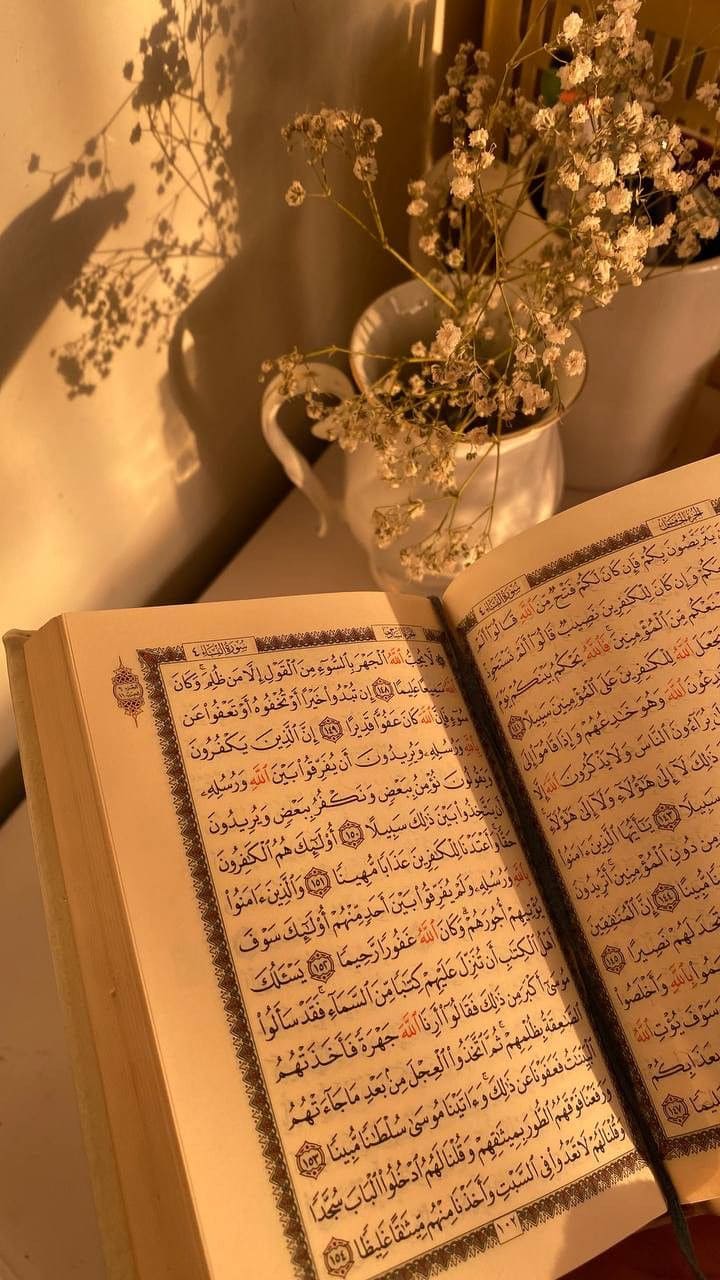 سُورَةُ النِّسَاءِ ٤ الجُزْءُ الخَامِسُ
يَتَرَبَّصُونَ بِكُمْ فَإِن كَانَ لَكُمْ فَتْحٌ مِّنَ ٱللَّهِ قَالُوٓا۟ أَلَمْ
وَإِن كَانَ لِلْكَٰفِرِينَ نَصِيبٌ قَالُوٓا۟ أَلَمْ نَسْتَحْوِذْ
مِّنَ ٱلْمُؤْمِنِينَ فَٱللَّهُ يَحْكُمُ بَيْنَكُمْ يَوْمَ
ٱللَّهُ لِلْكَٰفِرِينَ عَلَى ٱلْمُؤْمِنِينَ سَبِيلًا ١٤١
ٱللَّهَ وَهُوَ خَٰدِعُهُمْ وَإِذَا قَامُوٓا۟ إِلَى
يُرَآءُونَ ٱلنَّاسَ وَلَا يَذْكُرُونَ ٱللَّهَ إِلَّا
ذَٰلِكَ لَآ إِلَىٰ هَٰٓؤُلَآءِ وَلَآ إِلَىٰ هَٰٓؤُلَآءِ
سَبِيلًا ١٤٣ يَٰٓأَيُّهَا ٱلَّذِينَ ءَامَنُوا۟
مِن دُونِ ٱلْمُؤْمِنِينَ أَتُرِيدُونَ
مُّبِينًا ١٤٤ إِنَّ ٱلْمُنَٰفِقِينَ
تَجِدَ لَهُمْ نَصِيرًا ١٤٥
بِٱللَّهِ وَأَخْلَصُوا۟
سَوْفَ يُؤْتِ ٱللَّهُ
بِعَذَابِكُمْ
١٤٧
سُورَةُ النِّسَاءِ ٤
لَّا يُحِبُّ ٱللَّهُ ٱلْجَهْرَ بِٱلسُّوٓءِ مِنَ ٱلْقَوْلِ إِلَّا مَن ظُلِمَ ۚ وَكَانَ
ٱللَّهُ سَمِيعًا عَلِيمًا ١٤٨ إِن تُبْدُوا۟ خَيْرًا أَوْ تُخْفُوهُ أَوْ تَعْفُوا۟ عَن
سُوٓءٍ فَإِنَّ ٱللَّهَ كَانَ عَفُوًّا قَدِيرًا ١٤٩ إِنَّ ٱلَّذِينَ يَكْفُرُونَ
بِٱللَّهِ وَرُسُلِهِۦ وَيُرِيدُونَ أَن يُفَرِّقُوا۟ بَيْنَ ٱللَّهِ وَرُسُلِهِۦ
وَيَقُولُونَ نُؤْمِنُ بِبَعْضٍ وَنَكْفُرُ بِبَعْضٍ وَيُرِيدُونَ
أَن يَتَّخِذُوا۟ بَيْنَ ذَٰلِكَ سَبِيلًا ١٥٠ أُو۟لَٰٓئِكَ هُمُ ٱلْكَٰفِرُونَ
حَقًّا ۚ وَأَعْتَدْنَا لِلْكَٰفِرِينَ عَذَابًا مُّهِينًا ١٥١ وَٱلَّذِينَ ءَامَنُوا۟
بِٱللَّهِ وَرُسُلِهِۦ وَلَمْ يُفَرِّقُوا۟ بَيْنَ أَحَدٍ مِّنْهُمْ أُو۟لَٰٓئِكَ سَوْفَ
يُؤْتِيهِمْ أُجُورَهُمْ ۗ وَكَانَ ٱللَّهُ غَفُورًا رَّحِيمًا ١٥٢ يَسْـَٔلُكَ
أَهْلُ ٱلْكِتَٰبِ أَن تُنَزِّلَ عَلَيْهِمْ كِتَٰبًا مِّنَ ٱلسَّمَآءِ ۚ فَقَدْ سَأَلُوا۟
مُوسَىٰٓ أَكْبَرَ مِن ذَٰلِكَ فَقَالُوٓا۟ أَرِنَا ٱللَّهَ جَهْرَةً فَأَخَذَتْهُمُ
ٱلصَّٰعِقَةُ بِظُلْمِهِمْ ۚ ثُمَّ ٱتَّخَذُوا۟ ٱلْعِجْلَ مِنۢ بَعْدِ مَا جَآءَتْهُمُ
ٱلْبَيِّنَٰتُ فَعَفَوْنَا عَن ذَٰلِكَ ۚ وَءَاتَيْنَا مُوسَىٰ سُلْطَٰنًا مُّبِينًا ١٥٣
وَرَفَعْنَا فَوْقَهُمُ ٱلطُّورَ بِمِيثَٰقِهِمْ وَقُلْنَا لَهُمُ ٱدْخُلُوا۟ ٱلْبَابَ سُجَّدًا
وَقُلْنَا لَهُمْ لَا تَعْدُوا۟ فِى ٱلسَّبْتِ وَأَخَذْنَا مِنْهُم مِّيثَٰقًا غَلِيظًا ١٥٤
١٠٢